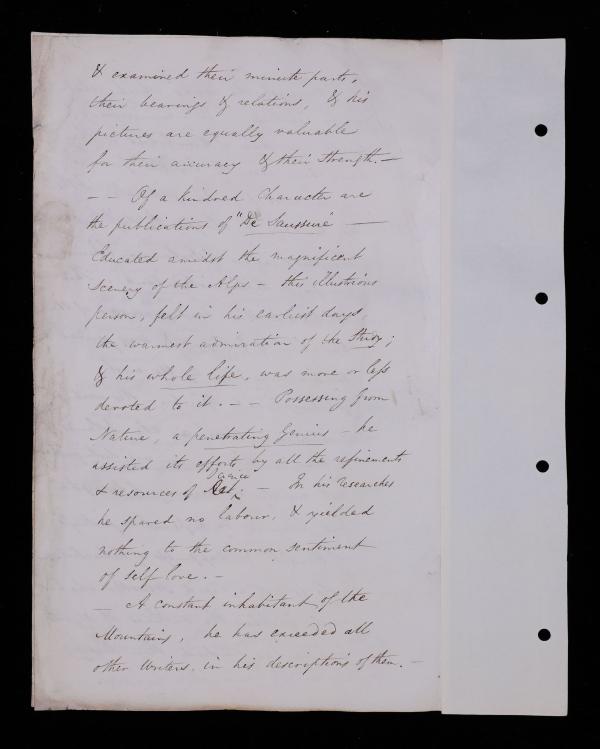 & examined their minute parts,
their bearings & relations, & his
pictures are equally valuable
for their accuracy & their strength. —
— — Of a kindred Character are
the publications of "De Saussure" —
Educated amidst the magnificent
Scenery of the Alps — this illustrious
person, felt in his earliest days,
the warmest admiration of the Study;
& his whole life, was more or less
devoted to it. — — Possessing from
Nature, a penetrating Genius — he
assisted its efforts by all the refinements
Science
& resources of Art; — In his researches
he spared no labour, & yielded
nothing to the common sentiment
of self love. —
— A constant inhabitant of the
Mountains, he has exceeded all
other writers, in his descriptions of them. —